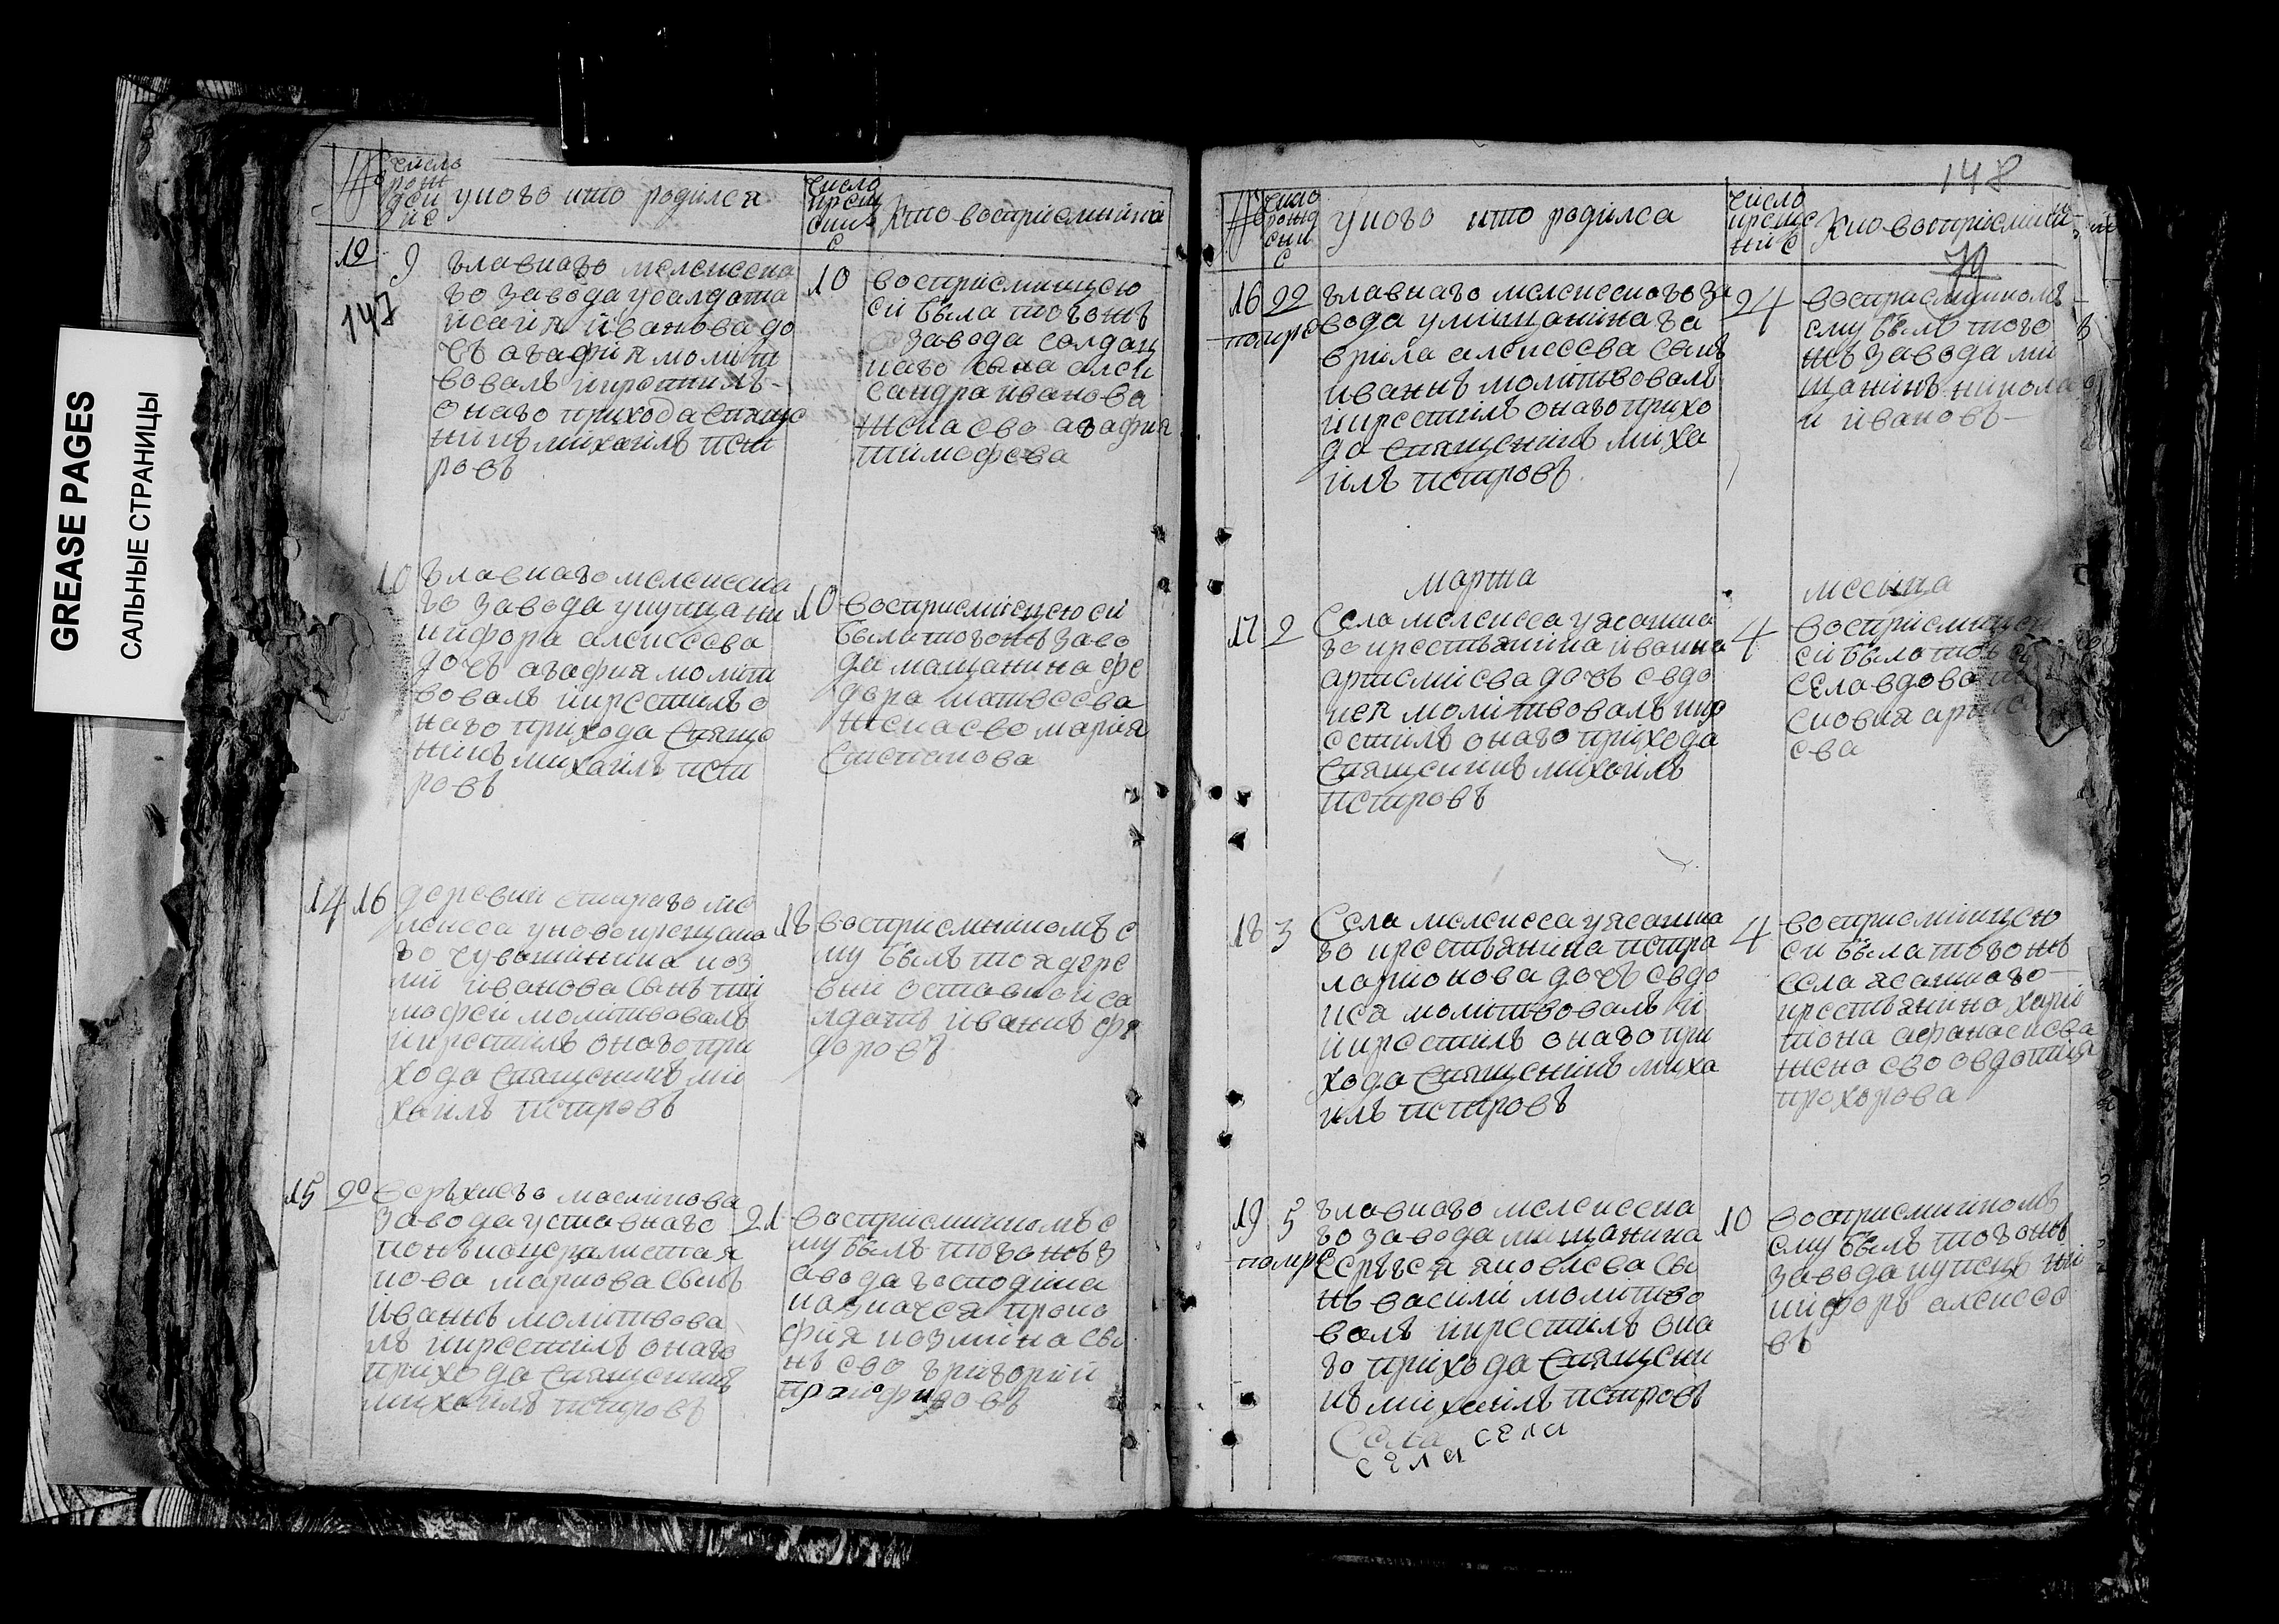 GREASE PAGES
САЛЬНЫЕ СТРАНИЦЫ
№
число рож дей ие
укого кто родился
число крещ ение
Кто восприемники
12
147
9
главнаго мелекеска
го завода усалдата
исаия иванова до
чь агафия молит
вовалъ икрестилъ
онаго прихода свяще
никъ михаилъ пет
ровъ
10
восприемницею
ей была тогожъ
завода салдац
каго сына алек
сандра иванова
жена ево агафия
тимофева
10
главнаго мелекеска
го завода укупца ни
кифора алексеева
дочь агафия молит
вовалъ икрестилъ о
наго прихода свяще
никъ михаилъ пет
ровъ
10
восприемницею ей
была тогожъ заво
да мащанина фе
дора матвеева
жена ево мария
степанова
14
16
деревни старого ме
лекесса уновокрещена
го чувашинина коз
ми иванова сынъ ти
мофей молитвовалъ
икрестилъ онаго при
хода священикъ ми
хаилъ петровъ
18
восприемникомъ е
му былъ тоя дере
вни отставной са
лдатъ иванъ фе
доровъ
15
20
завода уставнаго
кова маркова сынъ
иванъ молитвова
лъ икрестилъ онаго
прихода священикъ
михаилъ петровъ
21
восприемникомъ е
му былъ тогожъ з
авода господина
казначея проко
фия козмина сы
нъ ево григорий
прокофиевъ
148
79
№
число рожд ени е
укого кто родился
число креще ние
Кто восприемник
16
помре
22
главнаго мелекескаго за
вода умищанина га
врила алексеева сынъ
иванъ молитвовалъ
икрестилъ онаго прихо
да священикъ миха
илъ петровъ
24
восприемникомъ
ему былъ того
жъ завода ми
щанинъ никола
и ивановъ
марта
месеца
17
2
Села мелекесса уясашна
го крестьянина ивана
артемиева дочь евдо
кея молитвовалъ икр
естилъ онаго прихода
священикъ михаилъ
петровъ
4
восприемницею
ей была
села вдова
ева
18
3
Села мелекесса уясашна
го крестьянина петра
ларионова дочь евдо
кея молитвовалъ и
икрестилъ онаго при
хода священикъ миха
илъ петровъ
4
восприемницею
ей была тогожъ
села ясашного
крестьянина хари
тона афанасиева
жена ево овдотия
прохорова
19
помре
5
главнаго мелекеска
го завода мищанина
сергея яковлева сы
нъ васили молитво
валъ икрестилъ она
го прихода священи
къ михаилъ петровъ
Села села
села
10
восприемникомъ
ему былъ тогожъ
завода купецъ ни
кифоръ алексее
въ